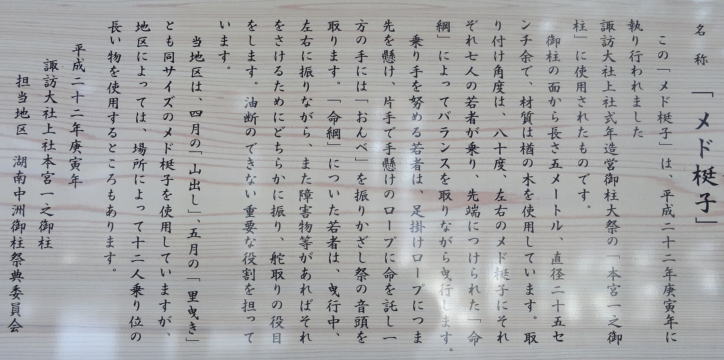 名称 「メド梃子」
この「メド梃子」は、平成二十二年庚寅年に
執り行われました
諏訪大社上社式年造営御柱大祭の「本宮一之御
柱」に使用されたものです。
御柱の面から長さ五メートル、直径二十五セ
ンチ余で、材質は楢の木を使用しています。取
り付け角度は、八十度、左右のメド梃子にそれ
ぞれ七人の若者が乗り、先端につけられた「命
綱」によってバランスを取りながら曳行します。
乗り手を努める若者は、足掛けロープにつま
先を懸け、片手で手懸けのロープに命を託し一
方の手には「おんべ」を振りかざし祭の音頭を
取ります。「命綱」についた若者は、曳行中、
左右に振りながら、また障害物等があればそれ
をさけるためにどちらかに振り、舵取りの役目
をします。油断のできない重要な役割を担って
います。
当地区は、四月の「山出し」、五月の「里曳き」
とも同サイズのメド梃子を使用していますが、
地区によっては、場所によって十二人乗り位の
長い物を使用するところもあります。
平成二十二年庚寅年
諏訪大社上社本宮一之御柱
担当地区 湖南中洲御柱祭典委員会